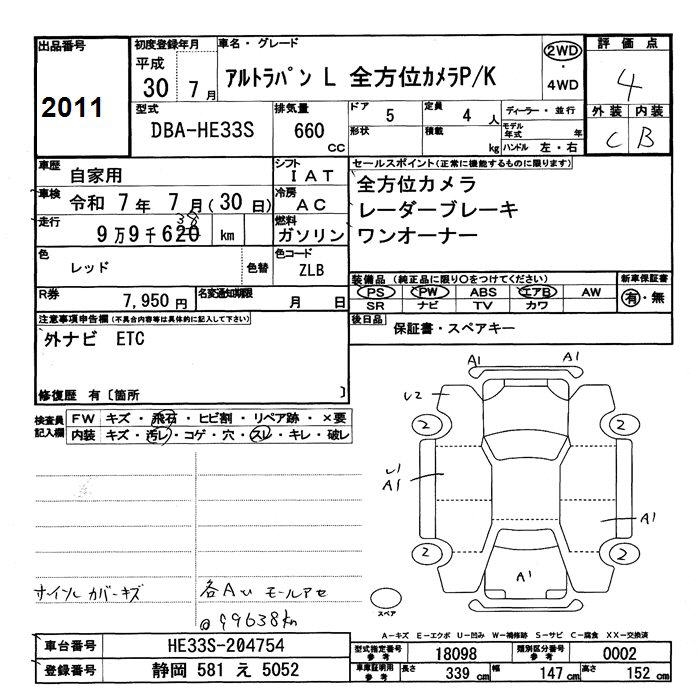 出品番号
2011
初度登録年月
平成
30 7月
車名・グレード
アルトラパン L 全方位カメラP/K
2WD
・
4WD
評価点
4
外装 内装
C B
型式
DBA-HE33S
排気量
660 CC
ドア 5
定員 4 人
形状
積載 kg
ディーラー・並行
モデル年式 年
ハンドル 左・右
車歴
自家用
シフト
IAT
車検
令和 7年 7月(30日)
冷房
AC
走行
9万9千620 km
38
燃料
ガソリン
色
レッド
色替
色コード
ZLB
R券
7,950円
名変通知期限
月 日
セールスポイント(正常に機能するものに限ります)
全方位カメラ
レーダーブレーキ
ワンオーナー
装備品(純正品に限り○をつけてください)
新車保証書
PS PW ABS エアB AW
SR ナビ TV カワ
有・無
後日品
保証書・スペアキー
注意事項申告欄(不具合内容等は具体的に記入して下さい)
外ナビ ETC
修復歴 有〔箇所 〕
検査員記入欄
FW キズ・飛石・ヒビ割・リペア跡・×要
内装 キズ・汚レ・コゲ・穴・スレ・キレ・破レ
A1 A1
U2
2 2
U1
A1
A1
2 2
A1
スペア
カバーキズ
各AU モールアセ
@99638km
A-キズ E-エクボ U-凹み W-補修跡 S-サビ C-腐食 XX-交換済
車台番号
HE33S-204754
登録番号
静岡 581 え 5052
型式指定番号 参考
18098
類別区分番号 参考
0002
車庫証明用 参考
長さ 339 cm
幅 147 cm
高さ 152 cm